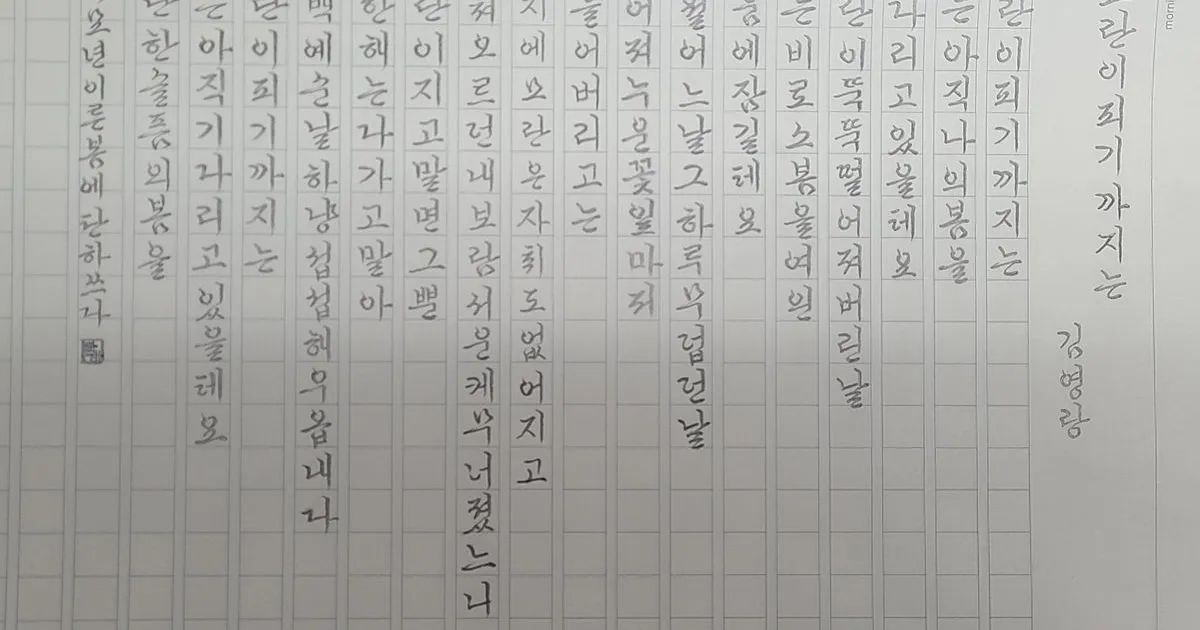 란이피기까지는
김영랑
란이피기까지는
는아직나의봄을
다리고있을테요
란이뚝뚝떨어져버린날
는비로소봄을여읜
움에잠길테요
월어느날그하루무덥던날
어져누운꽃잎마저
들어버리고는
지에모란은자취도없어지고
쳐오르던내보람서운케무너졌느니
란이지고말면그뿐
한해는다가고말아
백예순날하냥섭섭해우옵내다
란이피기까지는
는아직기다리고있을테요
란한슬픔의봄을
묘년이른봄에단하쓰다
morni